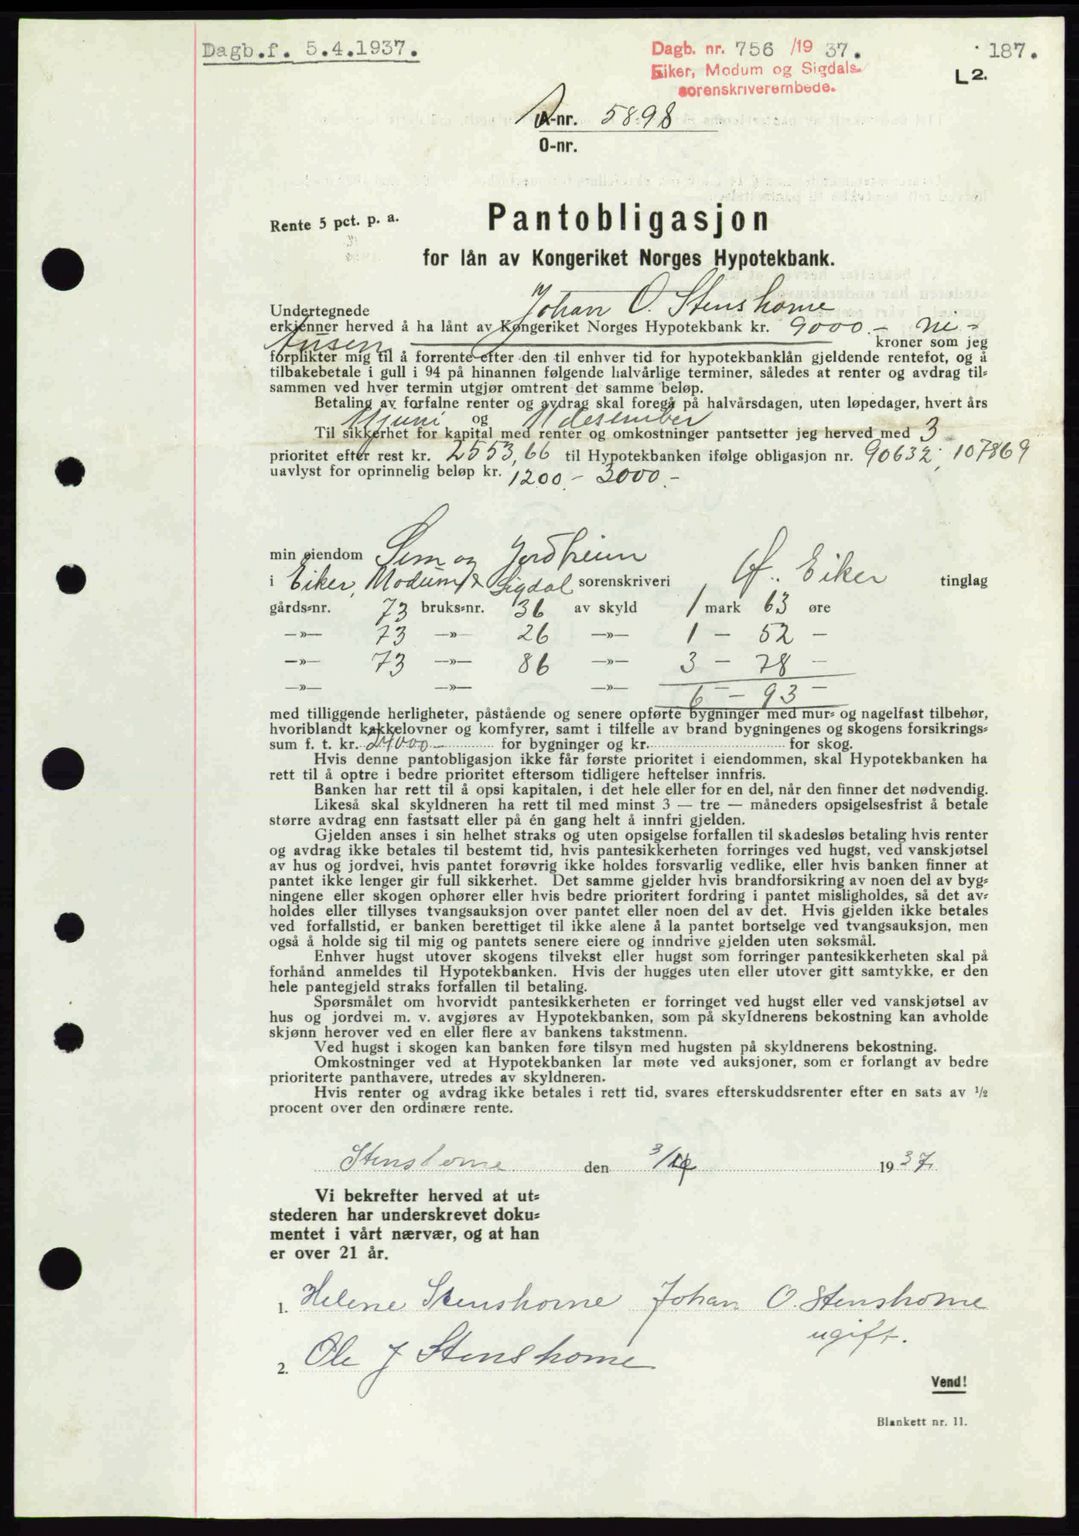 Dagb.f. 5.4.1937.
Dagb. nr. 756 /19 37.
Eiker, Modum og Sigdals
sorenskriverembede.
187.
L2.
A-nr. 5898
O-nr.
Rente 5 pct. p. a.
Pantobligasjon
for lån av Kongeriket Norges Hypotekbank.
Undertegnede Johan O. Stenshorne
erkjenner herved å ha lånt av Kongeriket Norges Hypotekbank kr. 9000.- ni-
tusen kroner som jeg
forplikter mig til å forrente efter den til enhver tid for hypotekbanklån gjeldende rentefot, og å
tilbakebetale i gull i 94 på hinannen følgende halvårlige terminer, således at renter og avdrag til=
sammen ved hver termin utgjør omtrent det samme beløp.
Betaling av forfalne renter og avdrag skal foregå på halvårsdagen, uten løpedager, hvert års
11 juni og 11 desember
Til sikkerhet for kapital med renter og omkostninger pantsetter jeg herved med 3
prioritet efter rest kr. 2553,66 til Hypotekbanken ifølge obligasjon nr. 90632, 107869
uavlyst for oprinnelig beløp kr. 1200.- 3000.-
min eiendom Sem og Jordheim
i Eiker, Modum & Sigdal sorenskriveri Ø. Eiker tinglag
gårds=nr. 73 bruks=nr. 36 av skyld 1 mark 63 øre
—»— 73 —»— 26 —»— 1 - 52 -
—»— 73 —»— 86 —»— 3 - 78 -
—»— —»— —»— 6 - 93 -
med tilliggende herligheter, påstående og senere opførte bygninger med mur= og nagelfast tilbehør,
hvoriblandt kakkelovner og komfyrer, samt i tilfelle av brand bygningenes og skogens forsikrings=
sum f. t. kr. 24000- for bygninger og kr. for skog.
Hvis denne pantobligasjon ikke får første prioritet i eiendommen, skal Hypotekbanken ha
rett til å optre i bedre prioritet eftersom tidligere heftelser innfris.
Banken har rett til å opsi kapitalen, i det hele eller for en del, når den finner det nødvendig.
Likeså skal skyldneren ha rett til med minst 3 — tre — måneders opsigelsesfrist å betale
større avdrag enn fastsatt eller på én gang helt å innfri gjelden.
Gjelden anses i sin helhet straks og uten opsigelse forfallen til skadesløs betaling hvis renter
og avdrag ikke betales til bestemt tid, hvis pantesikkerheten forringes ved hugst, ved vanskjøtsel
av hus og jordvei, hvis pantet forøvrig ikke holdes forsvarlig vedlike, eller hvis banken finner at
pantet ikke lenger gir full sikkerhet. Det samme gjelder hvis brandforsikring av noen del av byg=
ningene eller skogen ophører eller hvis bedre prioritert fordring i pantet misligholdes, så det av=
holdes eller tillyses tvangsauksjon over pantet eller noen del av det. Hvis gjelden ikke betales
ved forfallstid, er banken berettiget til ikke alene å la pantet bortselge ved tvangsauksjon, men
også å holde sig til mig og pantets senere eiere og inndrive gjelden uten søksmål.
Enhver hugst utover skogens tilvekst eller hugst som forringer pantesikkerheten skal på
forhånd anmeldes til Hypotekbanken. Hvis der hugges uten eller utover gitt samtykke, er den
hele pantegjeld straks forfallen til betaling.
Spørsmålet om hvorvidt pantesikkerheten er forringet ved hugst eller ved vanskjøtsel av
hus og jordvei m. v. avgjøres av Hypotekbanken, som på skyldnerens bekostning kan avholde
skjønn herover ved en eller flere av bankens takstmenn.
Ved hugst i skogen kan banken føre tilsyn med hugsten på skyldnerens bekostning.
Omkostninger ved at Hypotekbanken lar møte ved auksjoner, som er forlangt av bedre
prioriterte panthavere, utredes av skyldneren.
Hvis renter og avdrag ikke betales i rett tid, svares efterskuddsrenter efter en sats av 1/2
procent over den ordinære rente.
Stenshorne den 3/4 1937.
Vi bekrefter herved at ut=
stederen har underskrevet doku=
mentet i vårt nærvær, og at han
er over 21 år.
1. Helene Stenshorne Johan O. Stenshorne
ugift.
2. Ole J Stenshorne
Vend!
Blankett nr. 11.